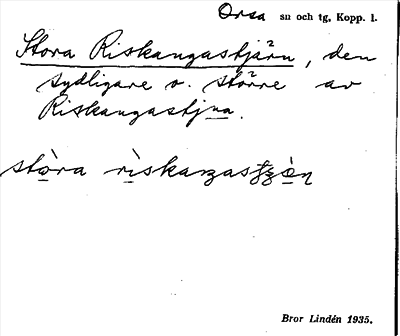 Orsa sn och tg, Kopp. l.
Stora Riskangastjärn, den
sydligare o. större av
Riskangastjna.
stòra rìskaŋastjạ̀ṇ
Bror Lindén 1935.